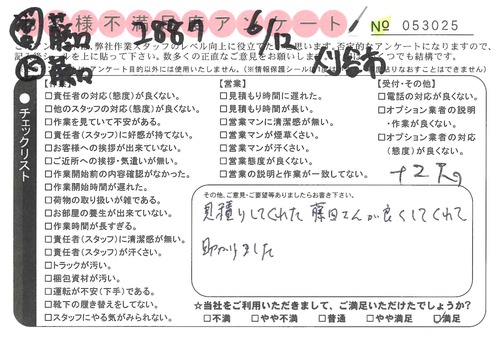 様不満足度アンケート
№ 053025
1887 6/12
は、弊社作業スタッフのレベル向上に役立てたい
思います。否定的なアンケートになりますので、
シールを上に貼って下さい。数多くの正直なご意見をお願いします
つでも結構です。
アンケート目的以外には使用いたしません。(※情報保護シール
貼りなおすことはできません)
チェックリスト
□責任者の対応(態度)が良くない。
□他のスタッフの対応(態度)が良くない。
□作業を見ていて不安がある。
□責任者(スタッフ)に好感が持てない。
□お客様への挨拶が出来ていない。
□ご近所への挨拶・気遣いが無い。
□作業開始前の内容確認がなかった。
□作業開始時間が遅れた。
□荷物の取り扱いが雑である。
□お部屋の養生が出来ていない。
□作業時間が長すぎる。
□責任者(スタッフ)に清潔感が無い。
□責任者(スタッフ)が汗くさい。
□トラックが汚い。
□梱包資材が汚い。
□運転が不安(下手)である。
□靴下の履き替えをしてない。
□スタッフにやる気がみられない。
【営業】
□見積もりが良くない。
□見積もり時間に遅れた。
□見積もり時間が長い。
□営業マンに清潔感が無い。
□営業マンが煙草くさい。
□営業マンが汗くさい。
□営業態度が良くない。
□営業の説明と作業が一致してない。
【受付・その他】
□電話の対応が良くない。
□オプション業者の説明
・作業が良くない。
□オプション業者の対応
(態度)が良くない。
その他、ご意見・ご要望等ありましたらお書き下さい。
見積りしてくれた 藤田さんが良くしてくれて
助かりました
☆当社をご利用いただきまして、ご満足いただけたでしょうか?
□不満 □やや不満 □普通 □やや満足 ☑満足